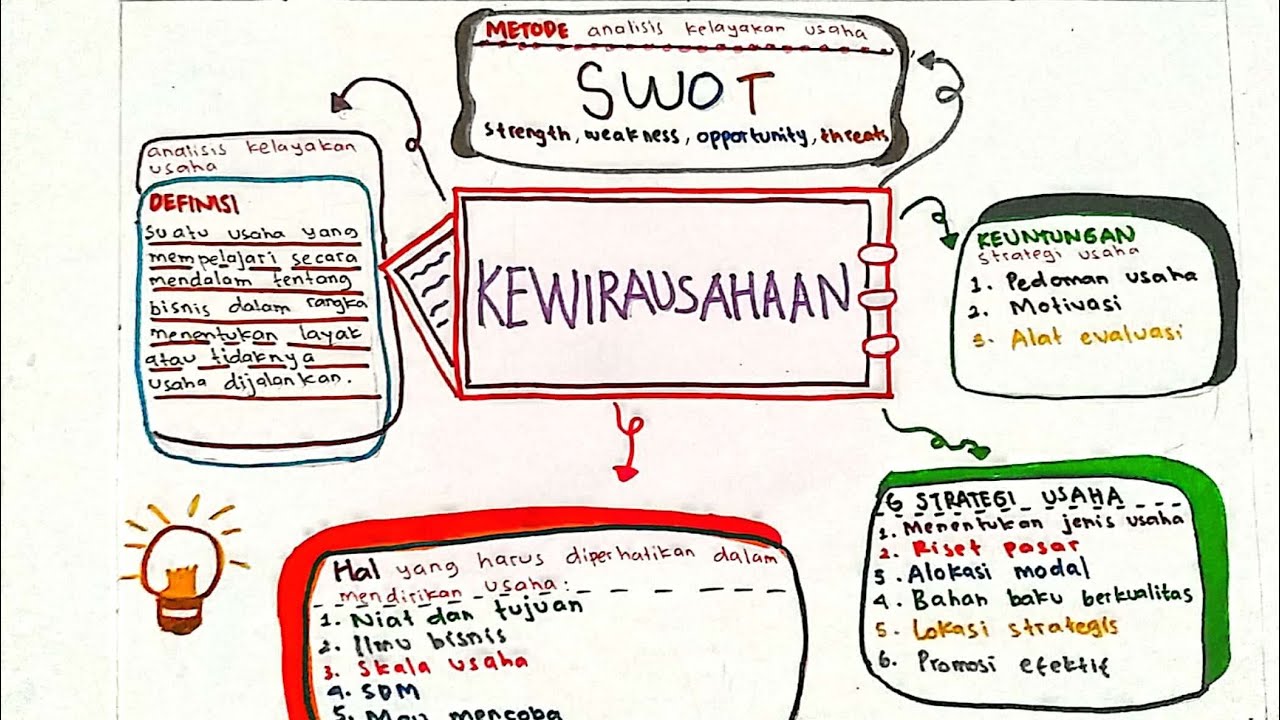 METODE analisis kelayakan usaha
SWOT
strength, weakness, opportunity, threats
analisis kelayakan
usaha
DEFINISI
suatu usaha yang
mempelajari secara
mendalam tentang
bisnis dalam rangka
menentukan layak
atau tidaknya
usaha dijalankan.
KEWIRAUSAHAAN
KEUNTUNGAN
strategi usaha
1. Pedoman usaha
2. Motivasi
3. Alat evaluasi
6 STRATEGI USAHA
1. Menentukan jenis usaha
2. Riset pasar
3. Alokasi modal
4. Bahan baku berkualitas
5. Lokasi strategis
6. Promosi efektif
Hal yang harus diperhatikan dalam
mendirikan usaha:
1. Niat dan tujuan
2. Ilmu bisnis
3. Skala usaha
4. SDM
5. Mau mencoba